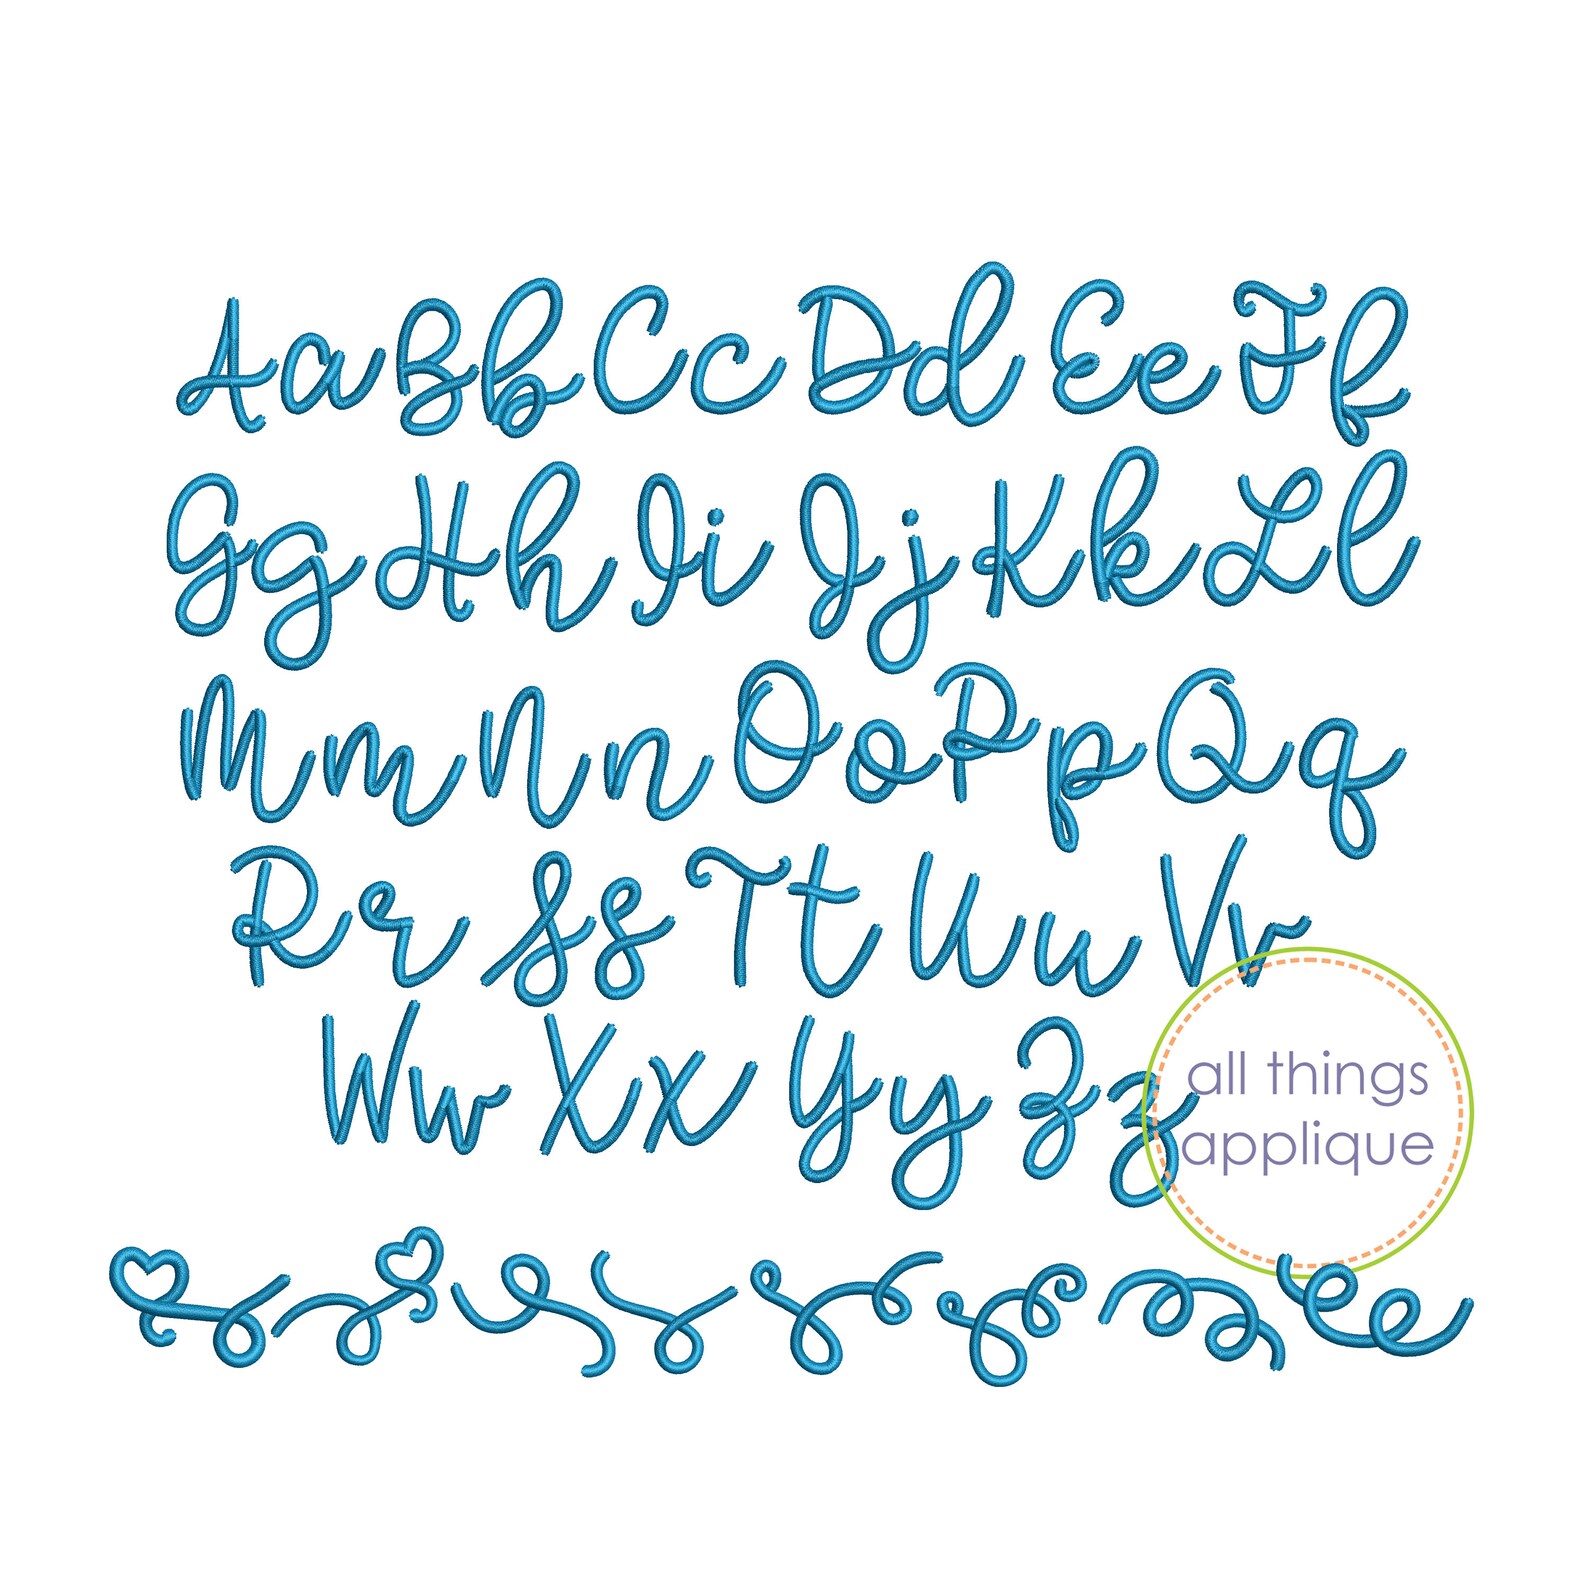 Aa Bb Cc Dd Ee Ff
Gg Hh Ii Jj Kk Ll
Mm Nn Oo Pp Qq
Rr Ss Tt Uu Vv
Ww Xx Yy Zz
all things
applique